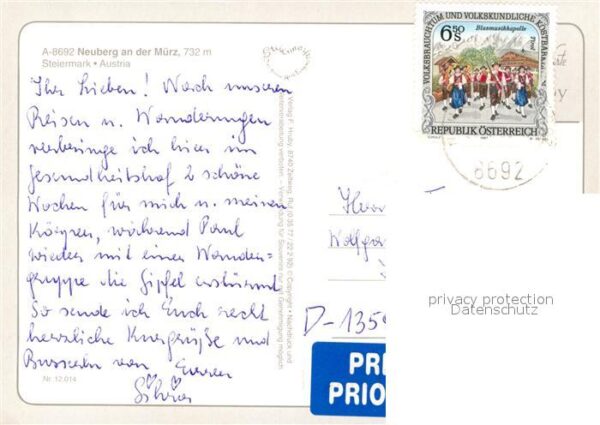 A-8692 Neuberg an der Mürz, 732 m
Steiermark • Austria
Ihr Lieben! Nach unseren
Reisen u. Wanderungen
verbringe ich hier im
Gesundheitshof 2 schöne
Wochen für mich u. meinen
Körper, während Paul
wieder mit einer Wander-
gruppe die Gipfel erstürmt
So sende ich Euch recht
herzliche Kurgrüße und
Busserln von Eurer
Silvia
Nr. 12.014
Verlag F. Hruby, 8740 Zeltweg,
Nachdruck und
Verwendung für Souvenirs nur mit Genehmigung möglich
VOLKSBRAUCHTUM UND VOLKSKUNDLICHE KOSTBARKEITEN
6,50
S
Blasmusikkapelle
Tirol
REPUBLIK ÖSTERREICH
8692
Herr
Wolfga
D-1359
PRI
PRIO
privacy protection
Datenschutz